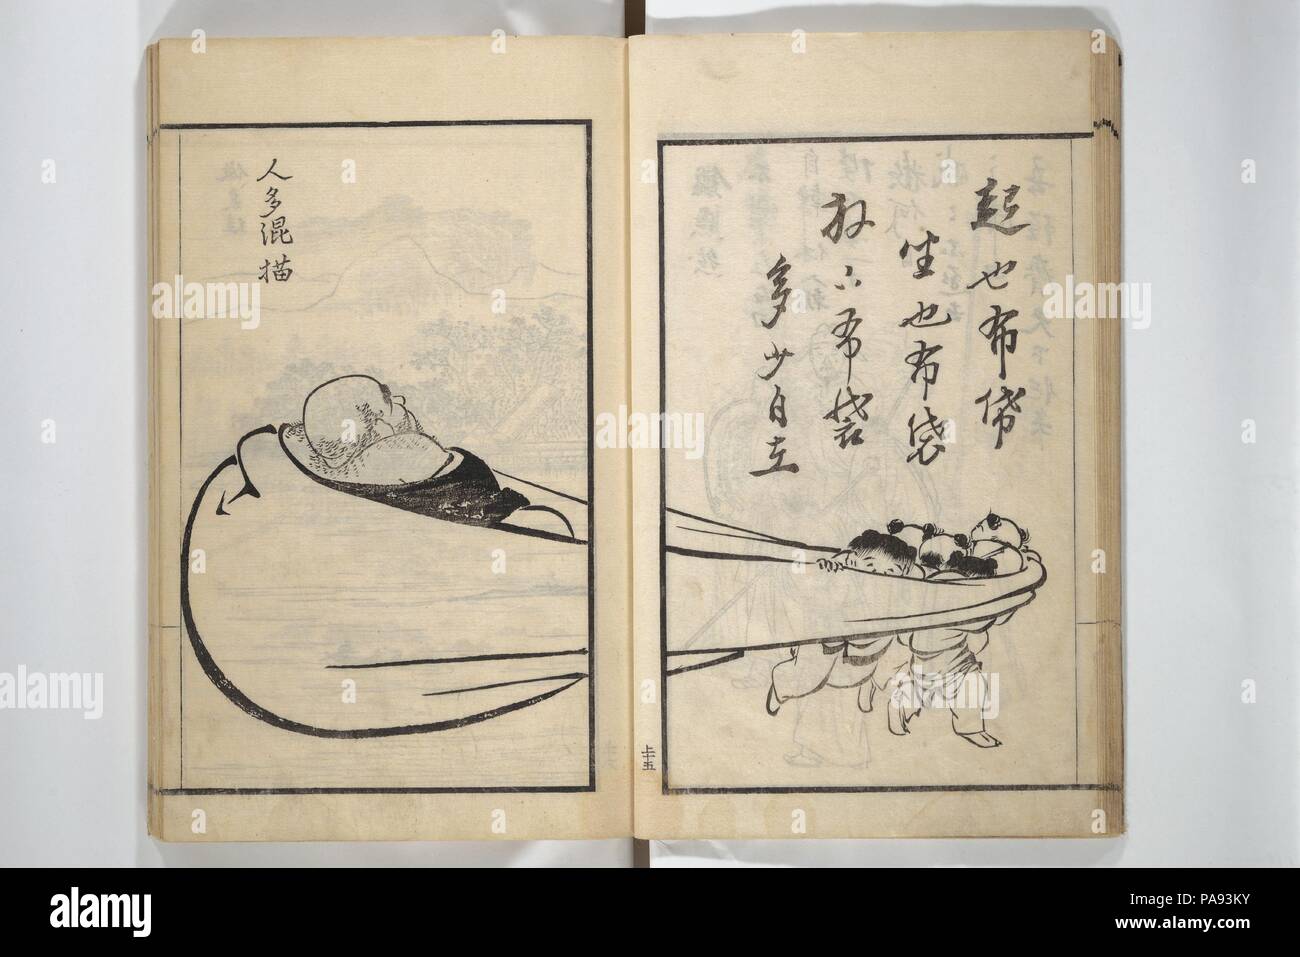 起也布袋
坐也布袋
放下布袋
多少自在
人多混描
上十五
alamy
Image ID: PA93KY
www.alamy.com